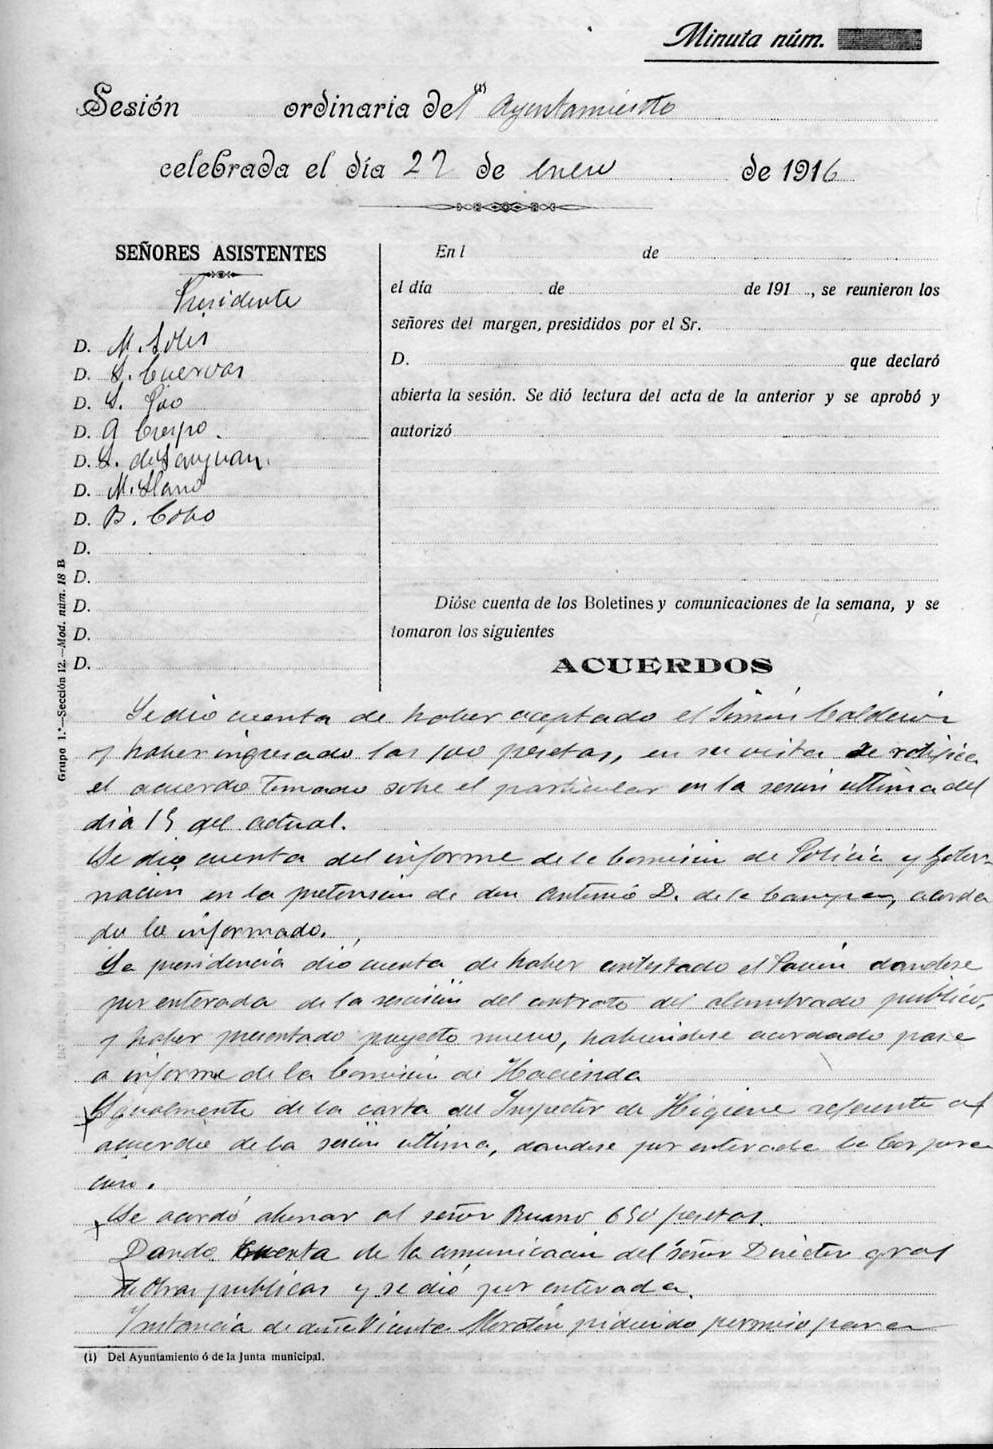 Minuta núm.
Sesión ordinaria del (1) Ayuntamiento
celebrada el día 27 de enero de 1916
SEÑORES ASISTENTES
Presidente
D. M. Solis
D. S. Cuervas
D. S. Gao
D. A Crespo.
D. S. de Sanjuan.
D. M. Llano
D. B. Cobo
D.
D.
D.
D.
D.
Grupo 1.º—Sección 12.—Mod. núm. 18 B
En l de
el día de de 191 , se reunieron los
señores del margen, presididos por el Sr.
D. que declaró
abierta la sesión. Se dió lectura del acta de la anterior y se aprobó y
autorizó
Dióse cuenta de los Boletines y comunicaciones de la semana, y se
tomaron los siguientes
ACUERDOS
Se dió cuenta de haber aceptado el Simón Calderón
y haber ingresado las 100 pesetas, en su vista se ratifica
el acuerdo tomado sobre el particular en la sesión ultima del
día 15 del actual.
Se dio cuenta del informe de la Comisión de Policía y Gober-
nación en la pretensión de don Antonio D. de la Campa, acorda
do lo informado.
La presidencia dio cuenta de haber contestado el dandose
por enterada de la rescisión del contrato del alumbrado publico,
y haber presentado proyecto nuevo, habiendose acordado pase
a informe de la Comisión de Hacienda
Igualmente de la carta del Inspector de Higiene referente al
acuerdo de la sesión ultima, dandose por enterada la Corpora
cion.
Se acordó abonar al señor Bueno 650 pesetas.
Dando Cuenta de la comunicación del señor Director gral
de Obras publicas y se dió por enterada.
Instancia de Vicente Morotón pidiendo permiso para
(1) Del Ayuntamiento ó de la Junta municipal.